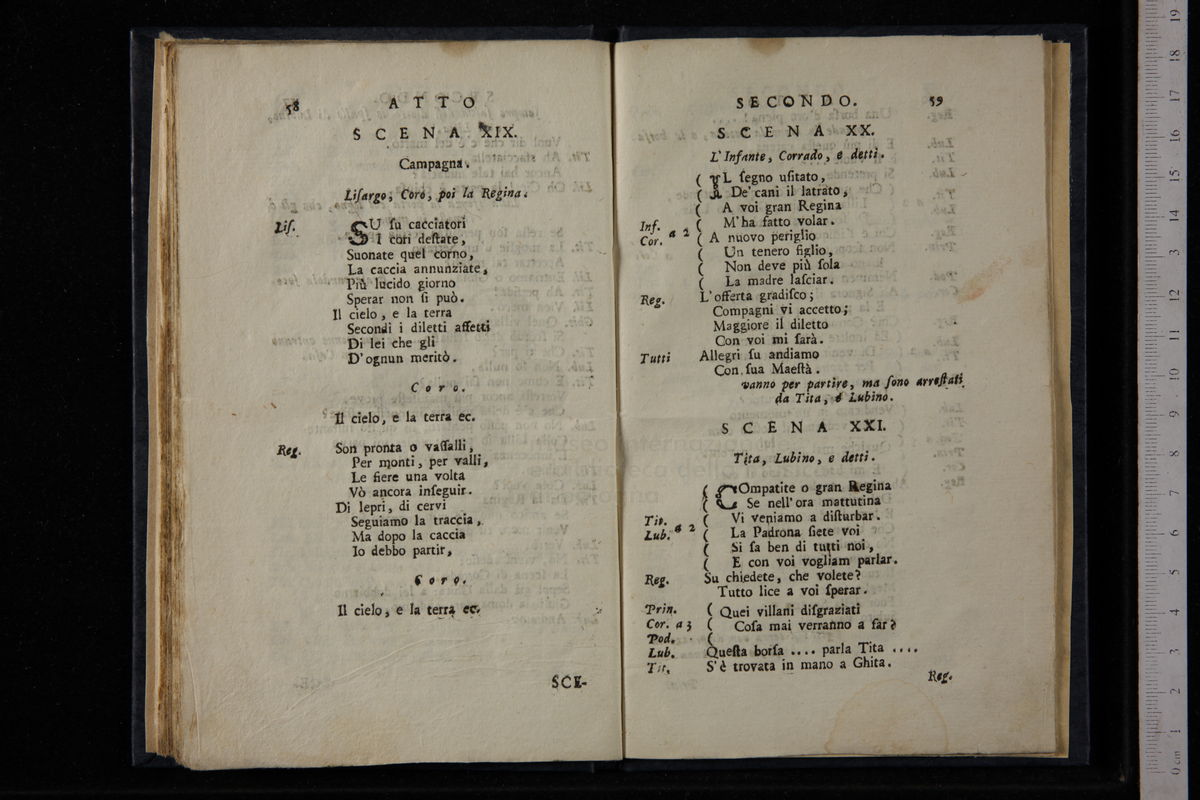 58 ATTO
SCENA XIX.
Campagna.
Liſargo, Coro, poi la Regina.
Liſ. SU ſu cacciatori
I cori deſtate,
Suonate quel corno,
La caccia annunziate,
Più lucido giorno
Sperar non ſi può.
Il cielo, e la terra
Secondi i diletti affetti
Di lei che gli
D'ognun meritò.
Coro.
Il cielo, e la terra ec.
Reg. Son pronta o vaſſalli,
Per monti, per valli,
Le fiere una volta
Vò ancora inſeguir.
Di lepri, di cervi
Seguiamo la traccia,
Ma dopo la caccia
Io debbo partir,
Coro.
Il cielo, e la terra ec.
SCE-
SECONDO. 59
SCENA XX.
L'Infante, Corrado, e detti.
( IL ſegno uſitato,
( De' cani il latrato,
( A voi gran Regina
Inf. ( M'ha fatto volar.
Cor. a 2 ( A nuovo periglio
( Un tenero figlio,
( Non deve più ſola
( La madre laſciar.
Reg. L'offerta gradiſco;
Compagni vi accetto;
Maggiore il diletto
Con voi mi ſarà.
Tutti Allegri ſu andiamo
Con ſua Maeſtà.
vanno per partire, ma ſono arreſtati
da Tita, e Lubino.
SCENA XXI.
Tita, Lubino, e detti.
( COmpatite o gran Regina
( Se nell'ora mattutina
Tit. ( Vi veniamo a diſturbar.
Lub. a 2 ( La Padrona ſiete voi
( Si ſa ben di tutti noi,
( E con voi vogliam parlar.
Reg. Su chiedete, che volete?
Tutto lice a voi ſperar.
Prin. ( Quei villani diſgraziati
Cor. a 3 ( Coſa mai verranno a far?
Pod. (
Lub. Queſta borſa .... parla Tita ....
Tit. S'è trovata in mano a Ghita.
Reg.
0 cm 1 2 3 4 5 6 7 8 9 10 11 12 13 14 15 16 17 18 19